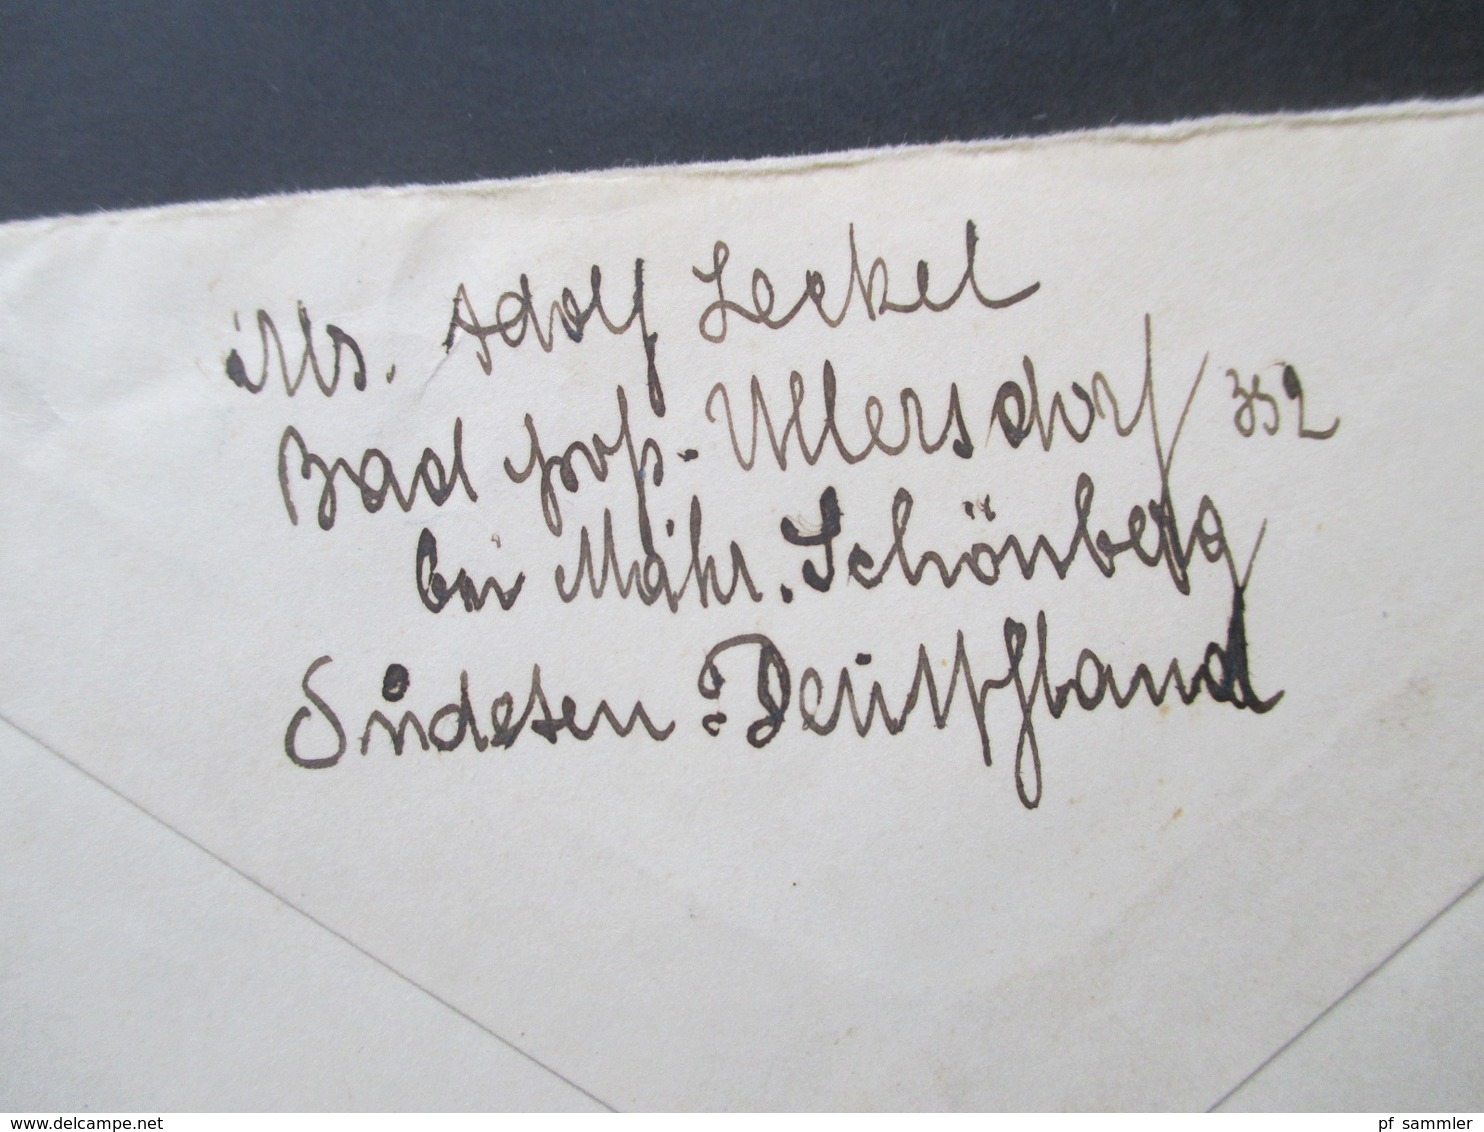 Abs. Adolf Seckel
Bad Groß-Ullersdorf 352
bei Mähr. Schönberg
Sudeten-Deutschland
www.delcampe.net
pf_sammler